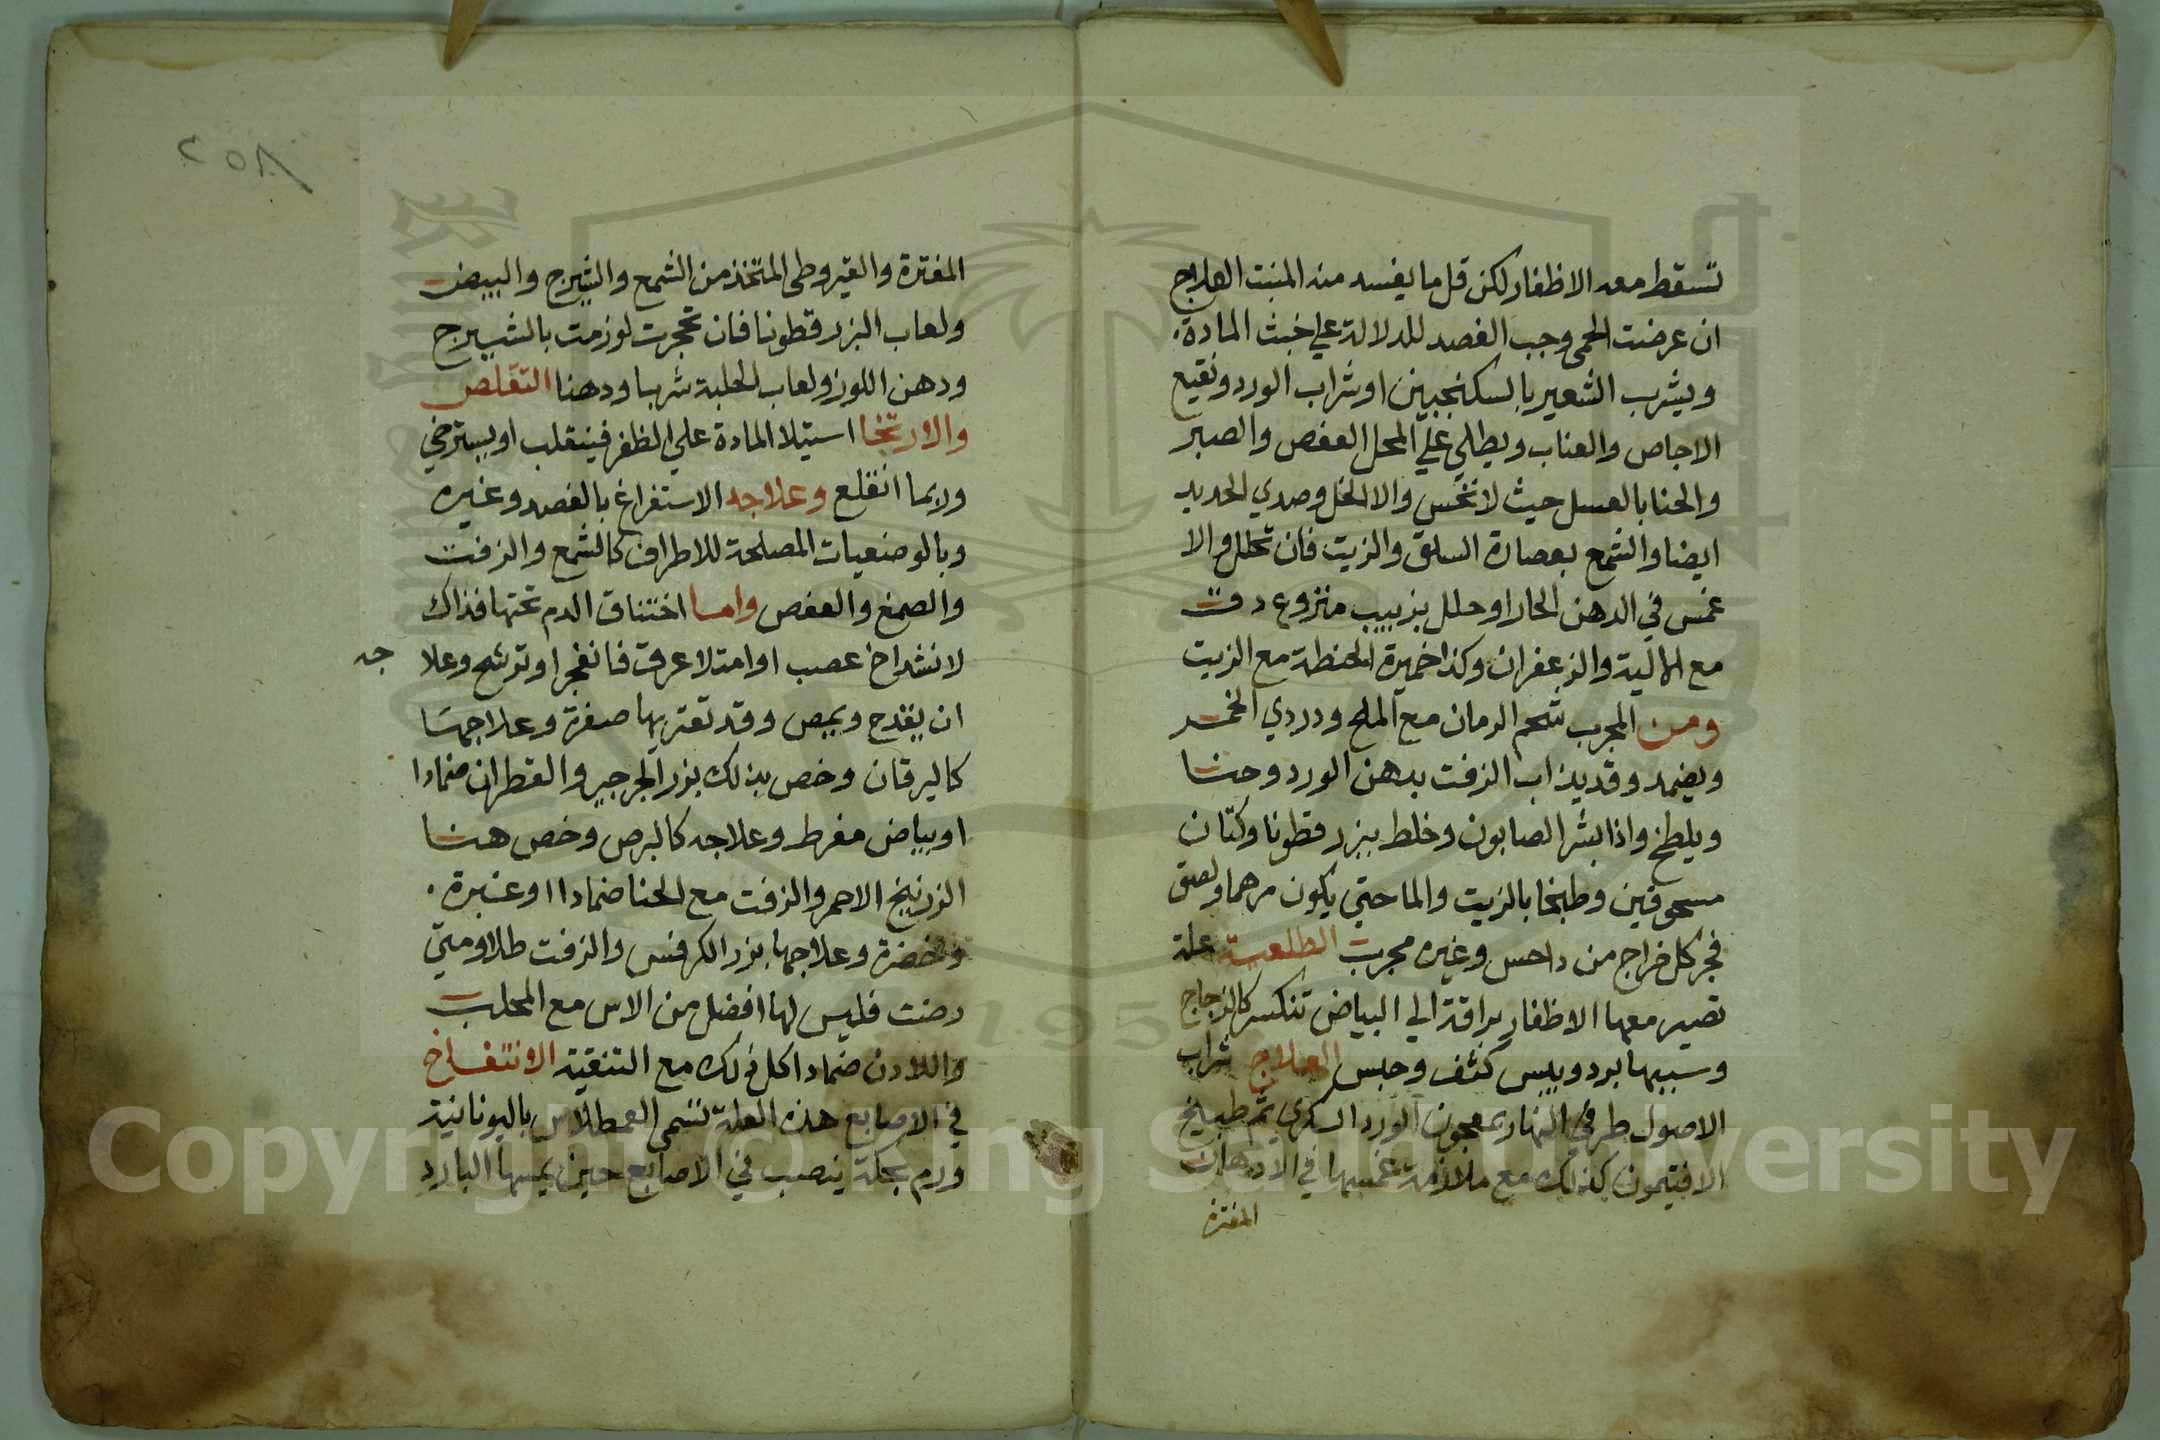 تسقط معه الاظفار لكن قل ما يفسد منه المنبت العلاج
ان عرضت الحمى وجب الفصد للدلالة علي خبث المادة
ويشرب الشعير بالسكنجبين او شراب الورد ونقيع
الاجاص والعناب ويطلي علي المحل العفص والصبر
والحنا بالعسل حيث لا نخس والا الخل وصدي الحديد
ايضا والشمع بعصارة السلق والزيت فان تحلل والا
غمس في الدهن الحار او حلل بزبيب منزوع دق
مع الالية والزعفران وكذا خميرة الحنطة مع الزيت
ومن المجرب شحم الرمان مع الملح ودردي الخمر
ويضمد وقد يذاب الزفت بدهن الورد وحنا
ويلطخ واذا بشر الصابون وخلط ببزر قطونا وكتان
مسحوقين وطبخا بالزيت والما حتي يكون مرهما ولصق
فجر كل خراج من داحس وغيره مجرب الطلعية علة
تصير معها الاظفار براقة الي البياض تنكسر كالزجاج
وسببها برد ويبس كثف وحبس العلاج شراب
الاصول طرفي النهار بمعجون الورد السكري ثم طبيخ
الافتيمون كذلك مع ملازمة غمسها في الادهان
المفترة
٢٥٨
المفترة والقيروطى المتخذ من الشمع والشيرج والبيض
ولعاب البزر قطونا فان تحجرت لوزمت بالشيرج
ودهن اللوز ولعاب الحلبة شربا ودهنا التقلص
والارتخا استيلا المادة علي الظفر فينقلب او يسترخي
وربما انقلع وعلاجه الاستفراغ بالفصد وغيره
وبالوضعيات المصلحة للاطراف كالشمع والزفت
والصمغ والعفص واما اختناق الدم تحتها فذاك
لانشداخ عصب او امتلا عرق فانفجر او ترشح وعلا
جه
ان يقدح ويمص وقد تعتريها صفرة وعلاجها
كاليرقان وخص بذلك بزر الجرجير والقطران ضمادا
او بياض مفرط وعلاجه كالبرص وخص هنا
الزرنيخ الاحمر والزفت مع الحنا ضمادا او غبرة
وخضرة وعلاجها بزر الكرفس والزفت طلا ومتي
رضت فليس لها افضل من الاس مع المحلب
واللادن ضمادا كل ذلك مع التنقية الانتفاخ
في الاصابع هذه العلة تسمى العمطلاس باليونانية
ورم بحكة ينصب في الاصابع حين يمسها البارد
Copyright © King Saud University
195